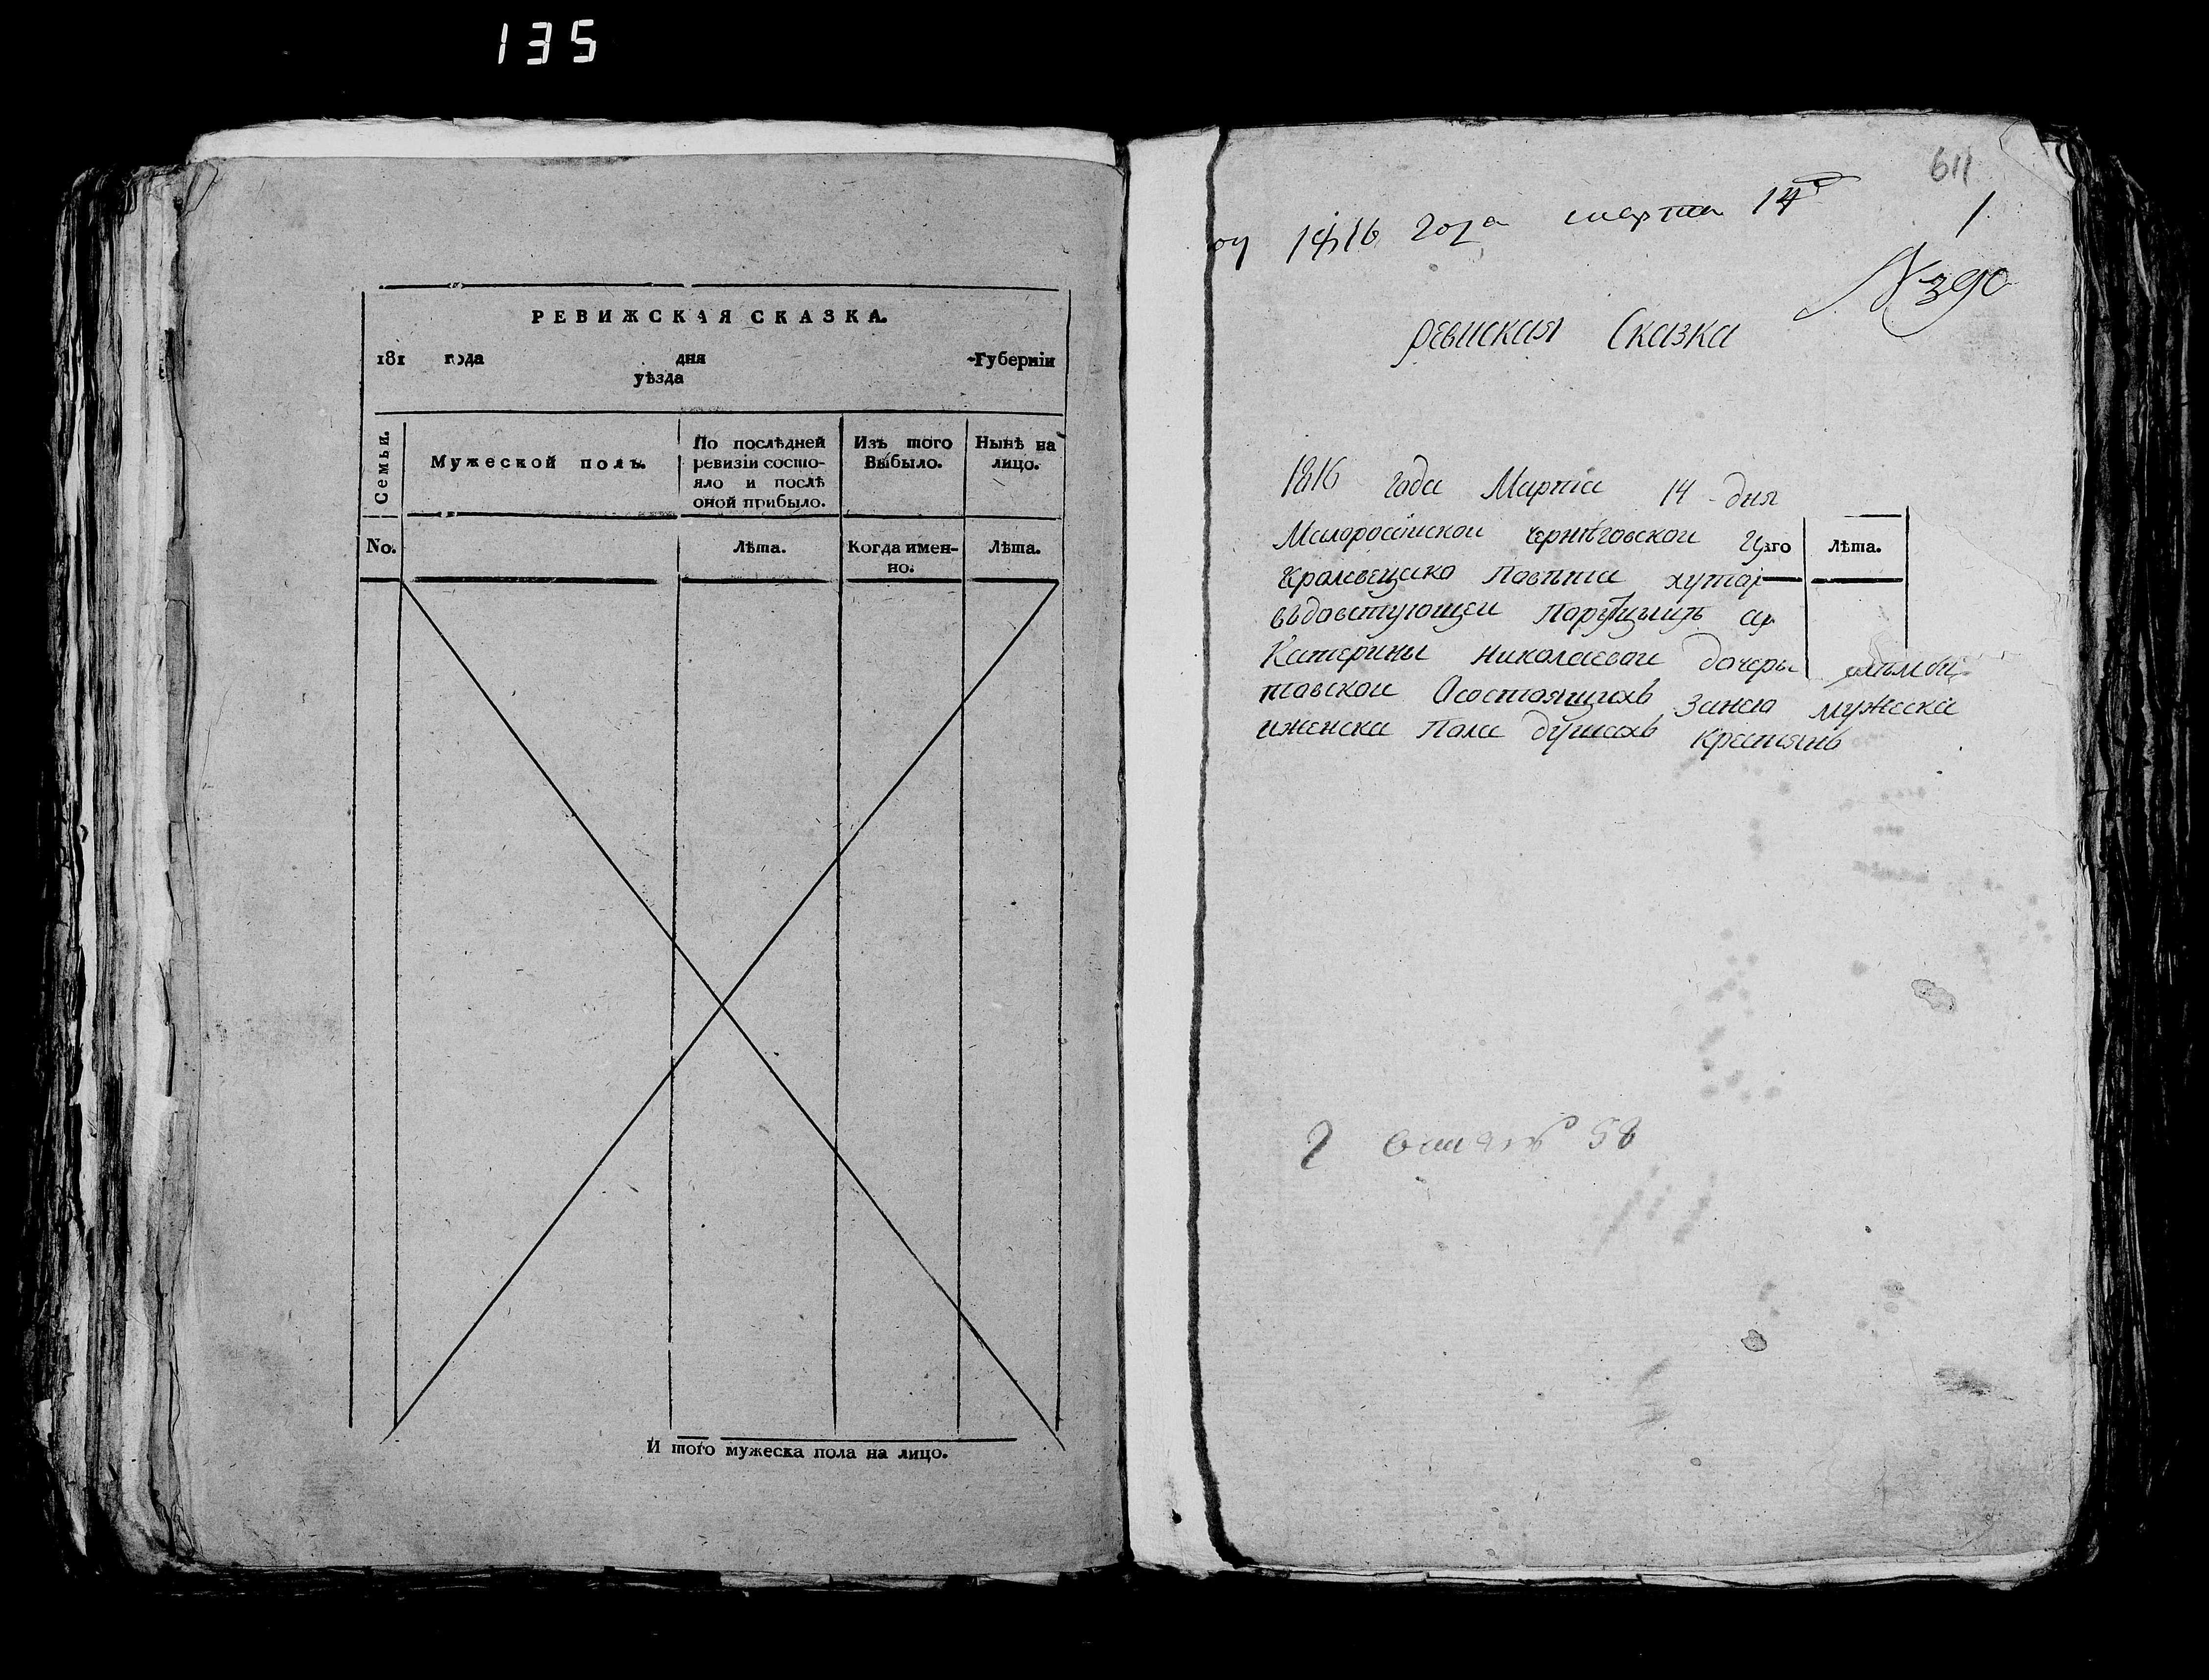 135
РЕВИЖСКАЯ СКАЗКА.
181 года дня Губерніи
уѣзда
Семьи.
Мужеской полъ.
По послѣдней ревизіи состо-
яло и послѣ
оной прибыло.
Изъ того
Выбыло.
Нынѣ на
лицо.
No.
Лѣта.
Когда имен-
но.
Лѣта.
И того мужеска пола на лицо.
611
1816 года марта 14
1
№ 390
ревиская Сказка
1816 года Мартіа 14 дня
Малоросійской Чернѣговской
аго Лѣта.
Кролевецкого Повѣта
Катерины Николаевой дочеры
товской Осостоящихъ Занею мужеска
иженска Пола душахъ Крестянъ
58